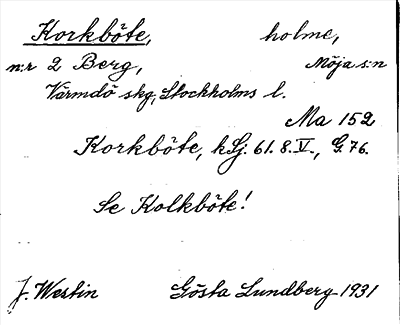 Korkböte, holme,
n:r 2 Berg, Möja s:n
Värmdö skg, Stockholms l.
Ma 152
Korkböte, hSj. 61. 8. V., G. 76.
Se Kolkböte!
J. Westin Gösta Lundberg 1931